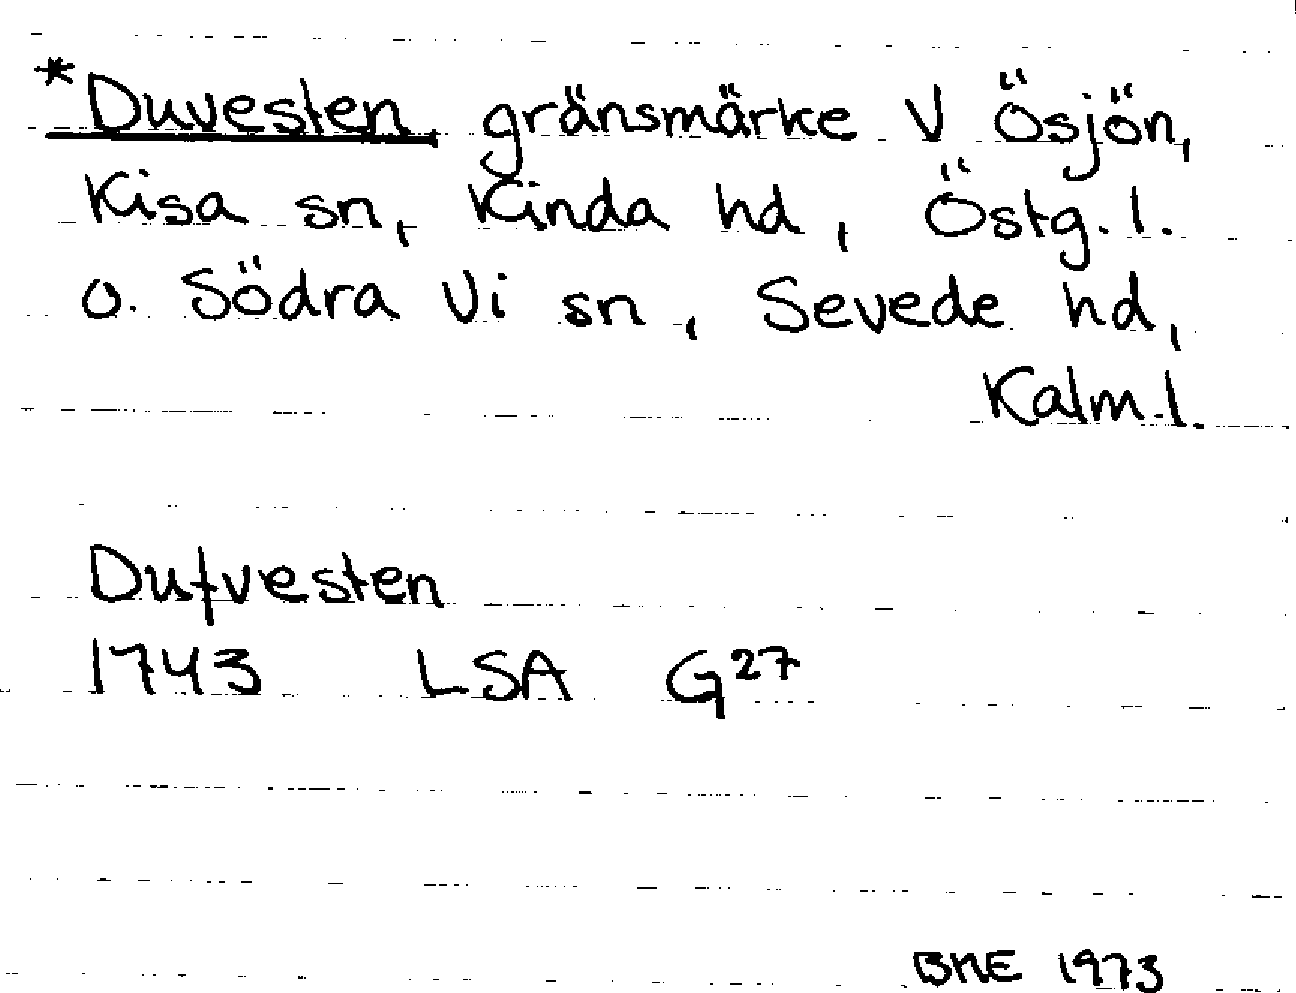 *Duvesten gränsmärke V Ösjön,
Kisa sn, Kinda hd, Östg. l.
o. Södra Vi sn, Sevede hd,
Kalm. l.
Dufvesten
1743 LSA G27
BME 1973